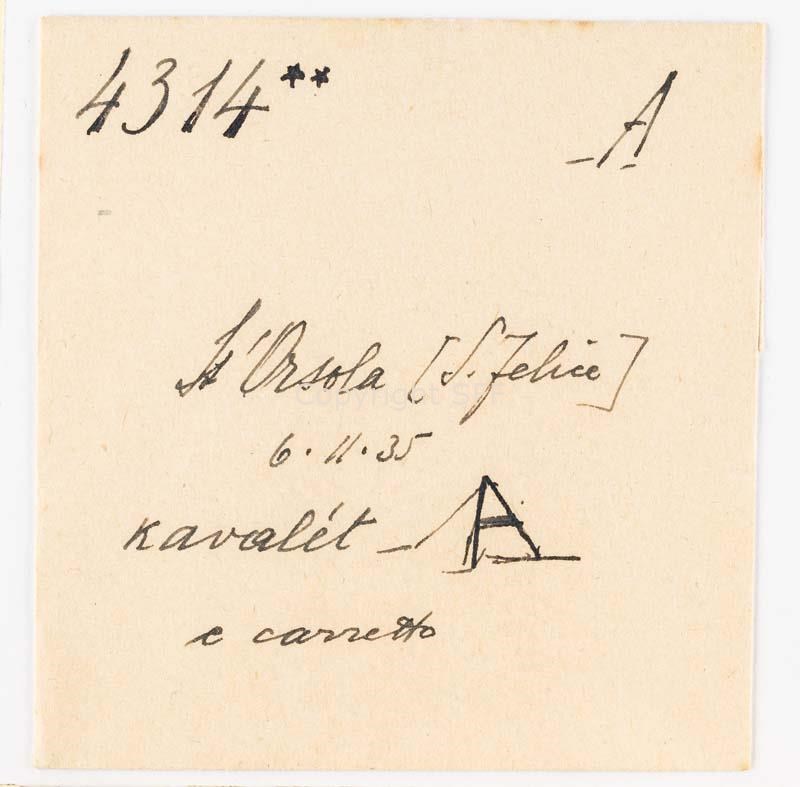 4314** A
St'Orsola [S. Felice]
Copyright SPF
6.11.35
kavalét - A
e carretto